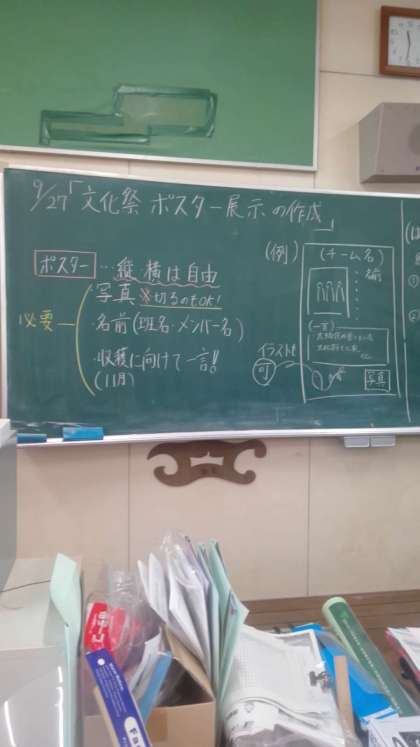 9/27「文化祭 ポスター展示の作成」
ポスター …縦 横は自由
必要
・写真 ※切るのもOK!
・名前(班名・メンバー名)
・収穫に向けて一言!!
(11月)
(例)
(チーム名)
名前
(一言)
イラスト
可
写真
(は
①
②